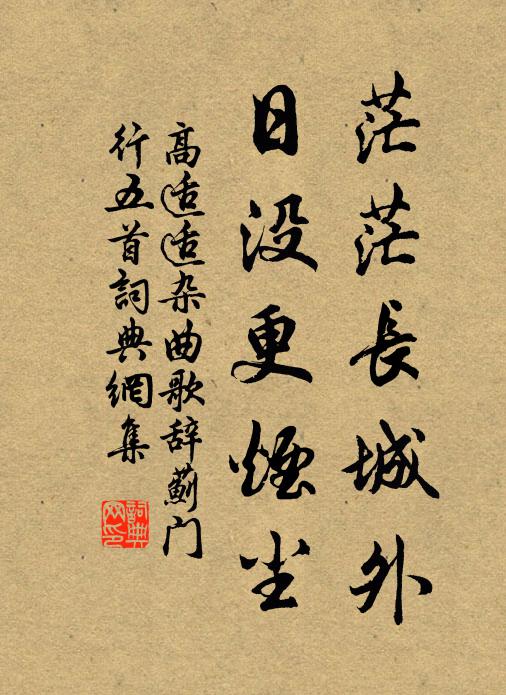 茫茫長城外
日没更煙尘
高适适杂曲歌辞薊门
行五首詞典網集
詞典網印